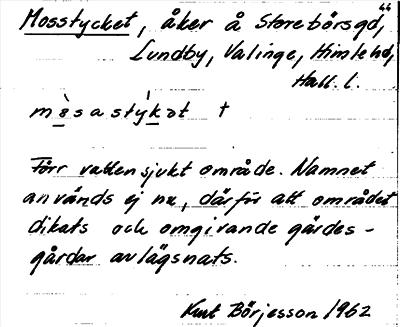 44
Mosstycket, åker å Storebörsgd,
Lundby, Valinge, Himlehd,
Hall. l.
mɵ̀sastýkət †
Förr vattensjukt område. Namnet
används ej nu, därför att området
dikats och omgivande gärdes-
gårdar avlägsnats.
Kurt Börjesson 1962